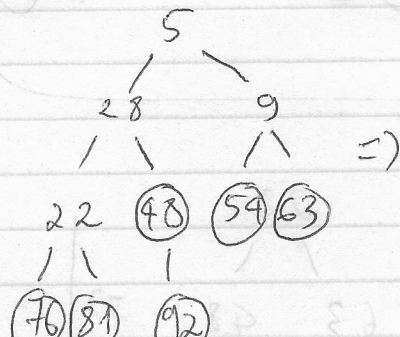 5
28 9
22 48 54 63 =)
76 81 92